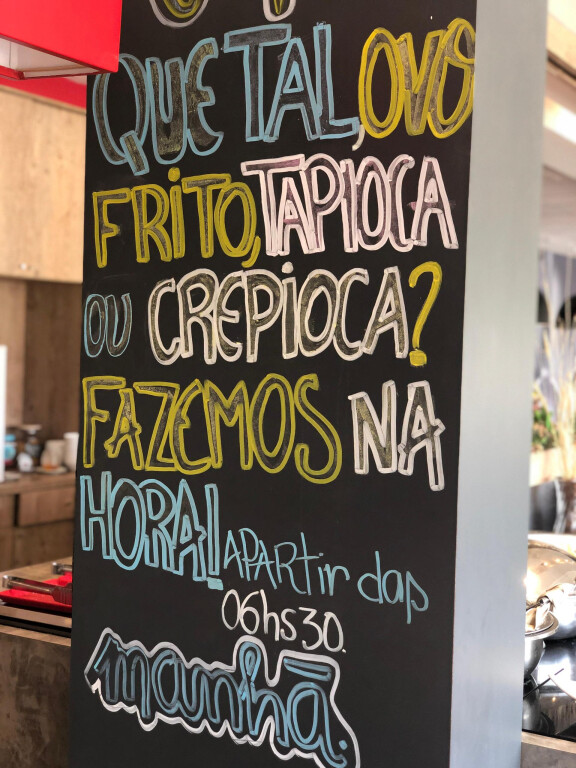 QUE TAL, OVO
FRITO, TAPIOCA
OU CREPIOCA?
FAZEMOS NA
HORA! APARTir dap
06hs30.
manhã.